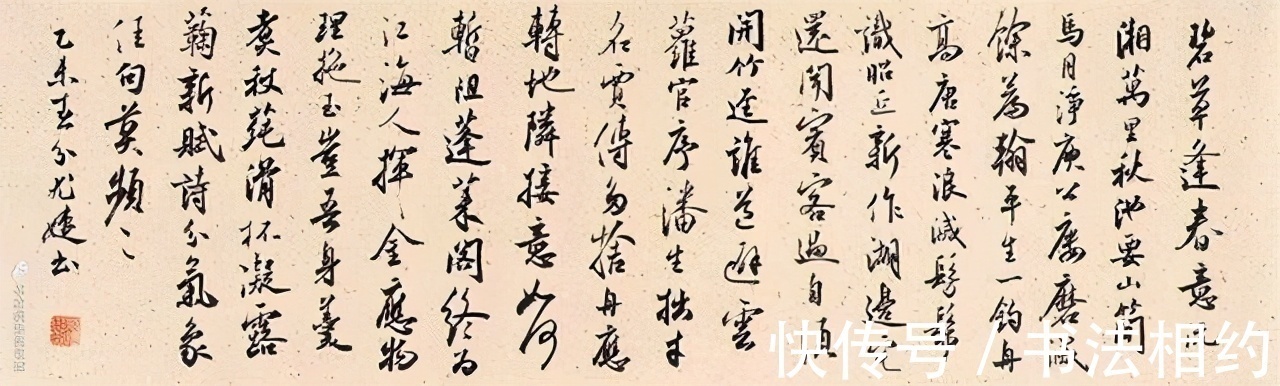 碧草逢春意沅
湘萬里秋池要山簡
馬月淨庾公樓磨滅
餘篇翰平生一鈎舟
高唐寒浪減髣髴
識昭丘新作湖邊宅
還聞賓客過自須
開竹逕誰道避雲
蘿官序潘生拙才
名賈傅多捨舟應
轉地隣接意如何
暫阻蓬萊閣終為
江海人揮金應物
理拖玉豈吾身羹
煮秋蓴滑杯凝露
菊新賦詩分氣象
佳句莫頻〻
乙未春分尤書
快传号 / 书法相约